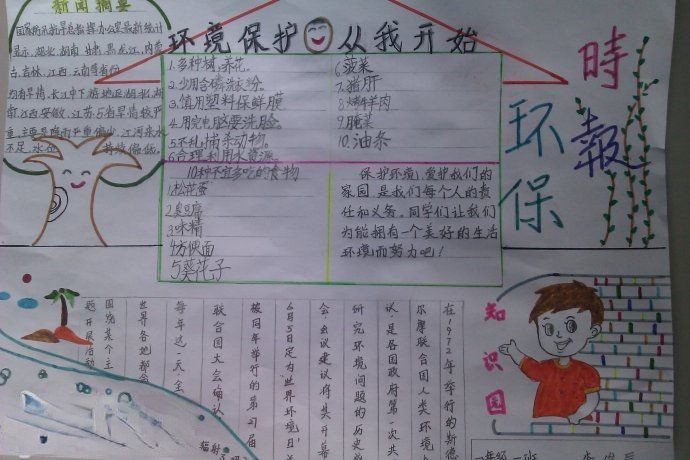 新闻摘要
国家防汛抗旱总指挥办公室最新统计
显示，湖北、湖南、
黑龙江、内蒙
古、吉林、江西、云南等省份
均有旱情，长江中下游地区湖北、湖
南、江西、安徽、江苏、5省旱情较严
江河来水
不足，水
环境保护 从我开始
1.多种植养花。
2.少用含磷洗衣粉。
3.慎用塑料保鲜膜
4.用完电脑要洗脸。
5.不乱捕杀动物。
6.合理利用水资源。
6.菠菜
7.猪肝
8.烤牛羊肉
9.腌菜
10.油条
10种不宜多吃的食物
1.松花蛋
2.臭豆腐
3.味精
4.方便面
5.葵花子
保护环境，爱护我们的
家园，是我们每个人的责
任和义务。同学们让我们
为能拥有一个美好的生活
环境而努力吧！
環保
時報
知识园
在1972年举行的斯德
尔摩联合国人类环境
议，是各国政府第一次共
研究环境问题的历史
会，会议建议将其开幕
6月5日定为“世界环境日”
被同年举行的第27届
联合国大会确认
每年这一天，全
世界各地都会
围绕某个主
题开展活动